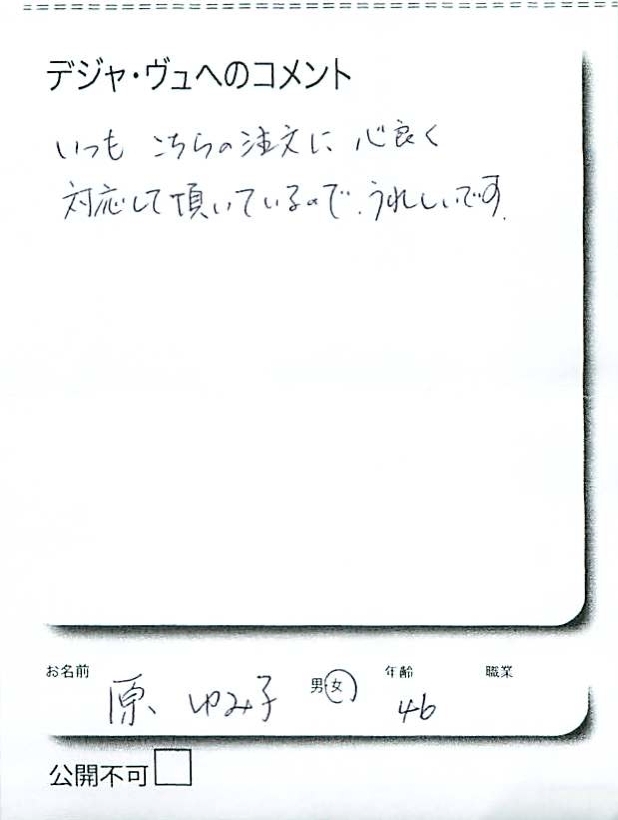 デジャ・ヴュへのコメント
いつも こちらの注文に 心良く
対応して頂いているので、うれしいです。
お名前 原 ゆみ子 男・女 年齢 46 職業
公開不可